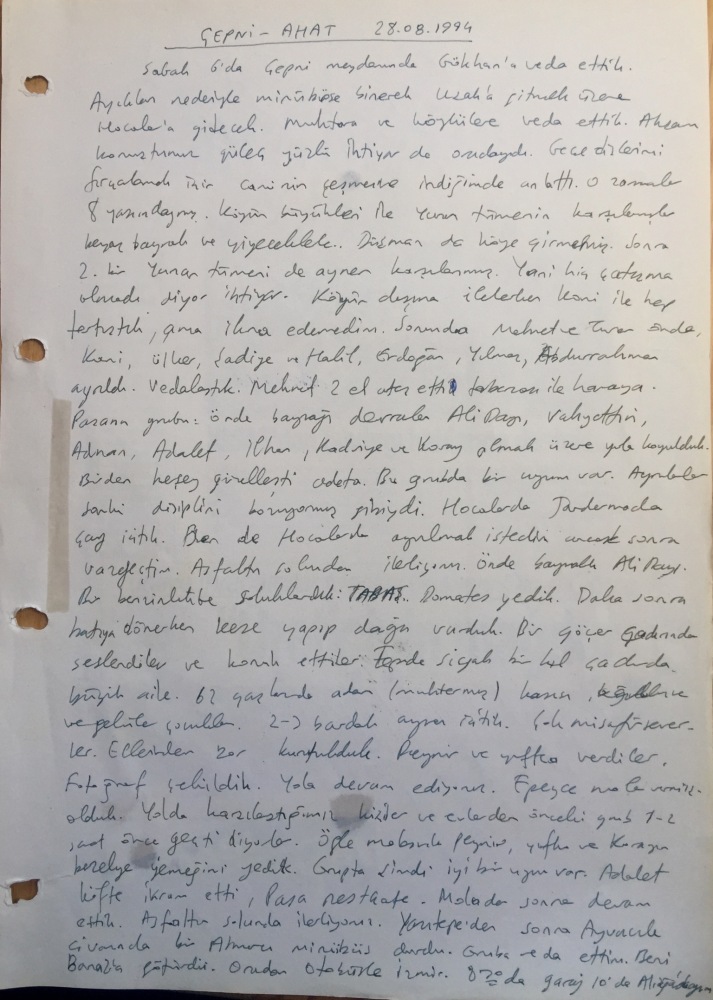 ÇEPNİ - AHAT 28.08.1994
Sabah 6'da Çepni meydanında Gökhan'a veda ettik.
Ayakları nedeniyle minübüse binerek Uşak'a gitmek üzere
Hocalar'a gidecek. Muhtara ve köylülere veda ettik. Akşam
konuştuğumuz güleç yüzlü ihtiyar da oradaydı. Gece dişlerimi
fırçalamak için caminin çeşmesine indiğimde anlattı. O zamanlar
8 yaşındaymış. Köyün büyükleri ile Yunan tümenin karşılamışlar
beyaz bayrak ve yiyeceklerle.. Düşman da köye girmemiş. Sonra
2. bir Yunan tümeni de aynen karşılanmış. Yani hiç çatışma
olmadı diyor ihtiyar. Köyün dışına ilerlerken Kani ile hep
tartıştık, ama ikna edemedim. Sonunda Mehmet ve Turan önde,
Kani, Ülker, Sadiye ve Halil, Erdoğan, Yılmaz, Abdurrahman
ayrıldı. Vedalaştık. Mehmet 2 el ateş etti tabancası ile havaya.
Paşanın grubu: önde bayrağı devralan Ali Dayı, Vahyettin,
Adnan, Adalet, İlhan, Kadriye ve Koray olmak üzere yola koyulduk.
Birden herşey güzelleşti adeta. Bu grupta bir uyum var. Ayrılanlar
sanki disiplini bozuyormuş gibiydi. Hocalarda Jandarmada
çay içtik. Ben de Hocalarda ayrılmak istedim ancak sonra
vazgeçtim. Asfaltın solundan ilerliyoruz. Önde bayrakla Ali Dayı.
Bir benzinlikte soluklandık: Domates yedik. Daha sonra
batıya dönerken kese yapıp dağa vurduk. Bir göçer çadırında
seslendiler ve konuk ettiler. Tepede sıcak bir kıl çadırda.
büyük aile. 62 yaşlarında adam (muhtarmış) karısı,
ve gelinler çocuklar. 2-3 bardak ayran içtik. Çok misafirsever-
ler. Ellerinden zor kurtulduk. Peynir ve yufka verdiler.
Fotoğraf çekildik. Yola devam ediyoruz. Epeyce mola vermiş
olduk. Yolda karşılaştığımız kişiler ve evlerden önceki grup 1-2
saat önce geçti diyorlar. Öğle molasında peynir, yufka ve Korayın
bezelye yemeğini yedik. Grupta şimdi iyi bir uyum var. Adalet
köfte ikram etti, Paşa neskafe. Moladan sonra devam
ettik. Asfaltın solunda ilerliyoruz. Yanıtepe'den sonra Ayvacık
civarında bir Almancı minibüsü durdu. Gruba veda ettim. Beni
Banaz'a götürdü. Oradan Otobüsle İzmir. 8³⁰da garaj 10'da